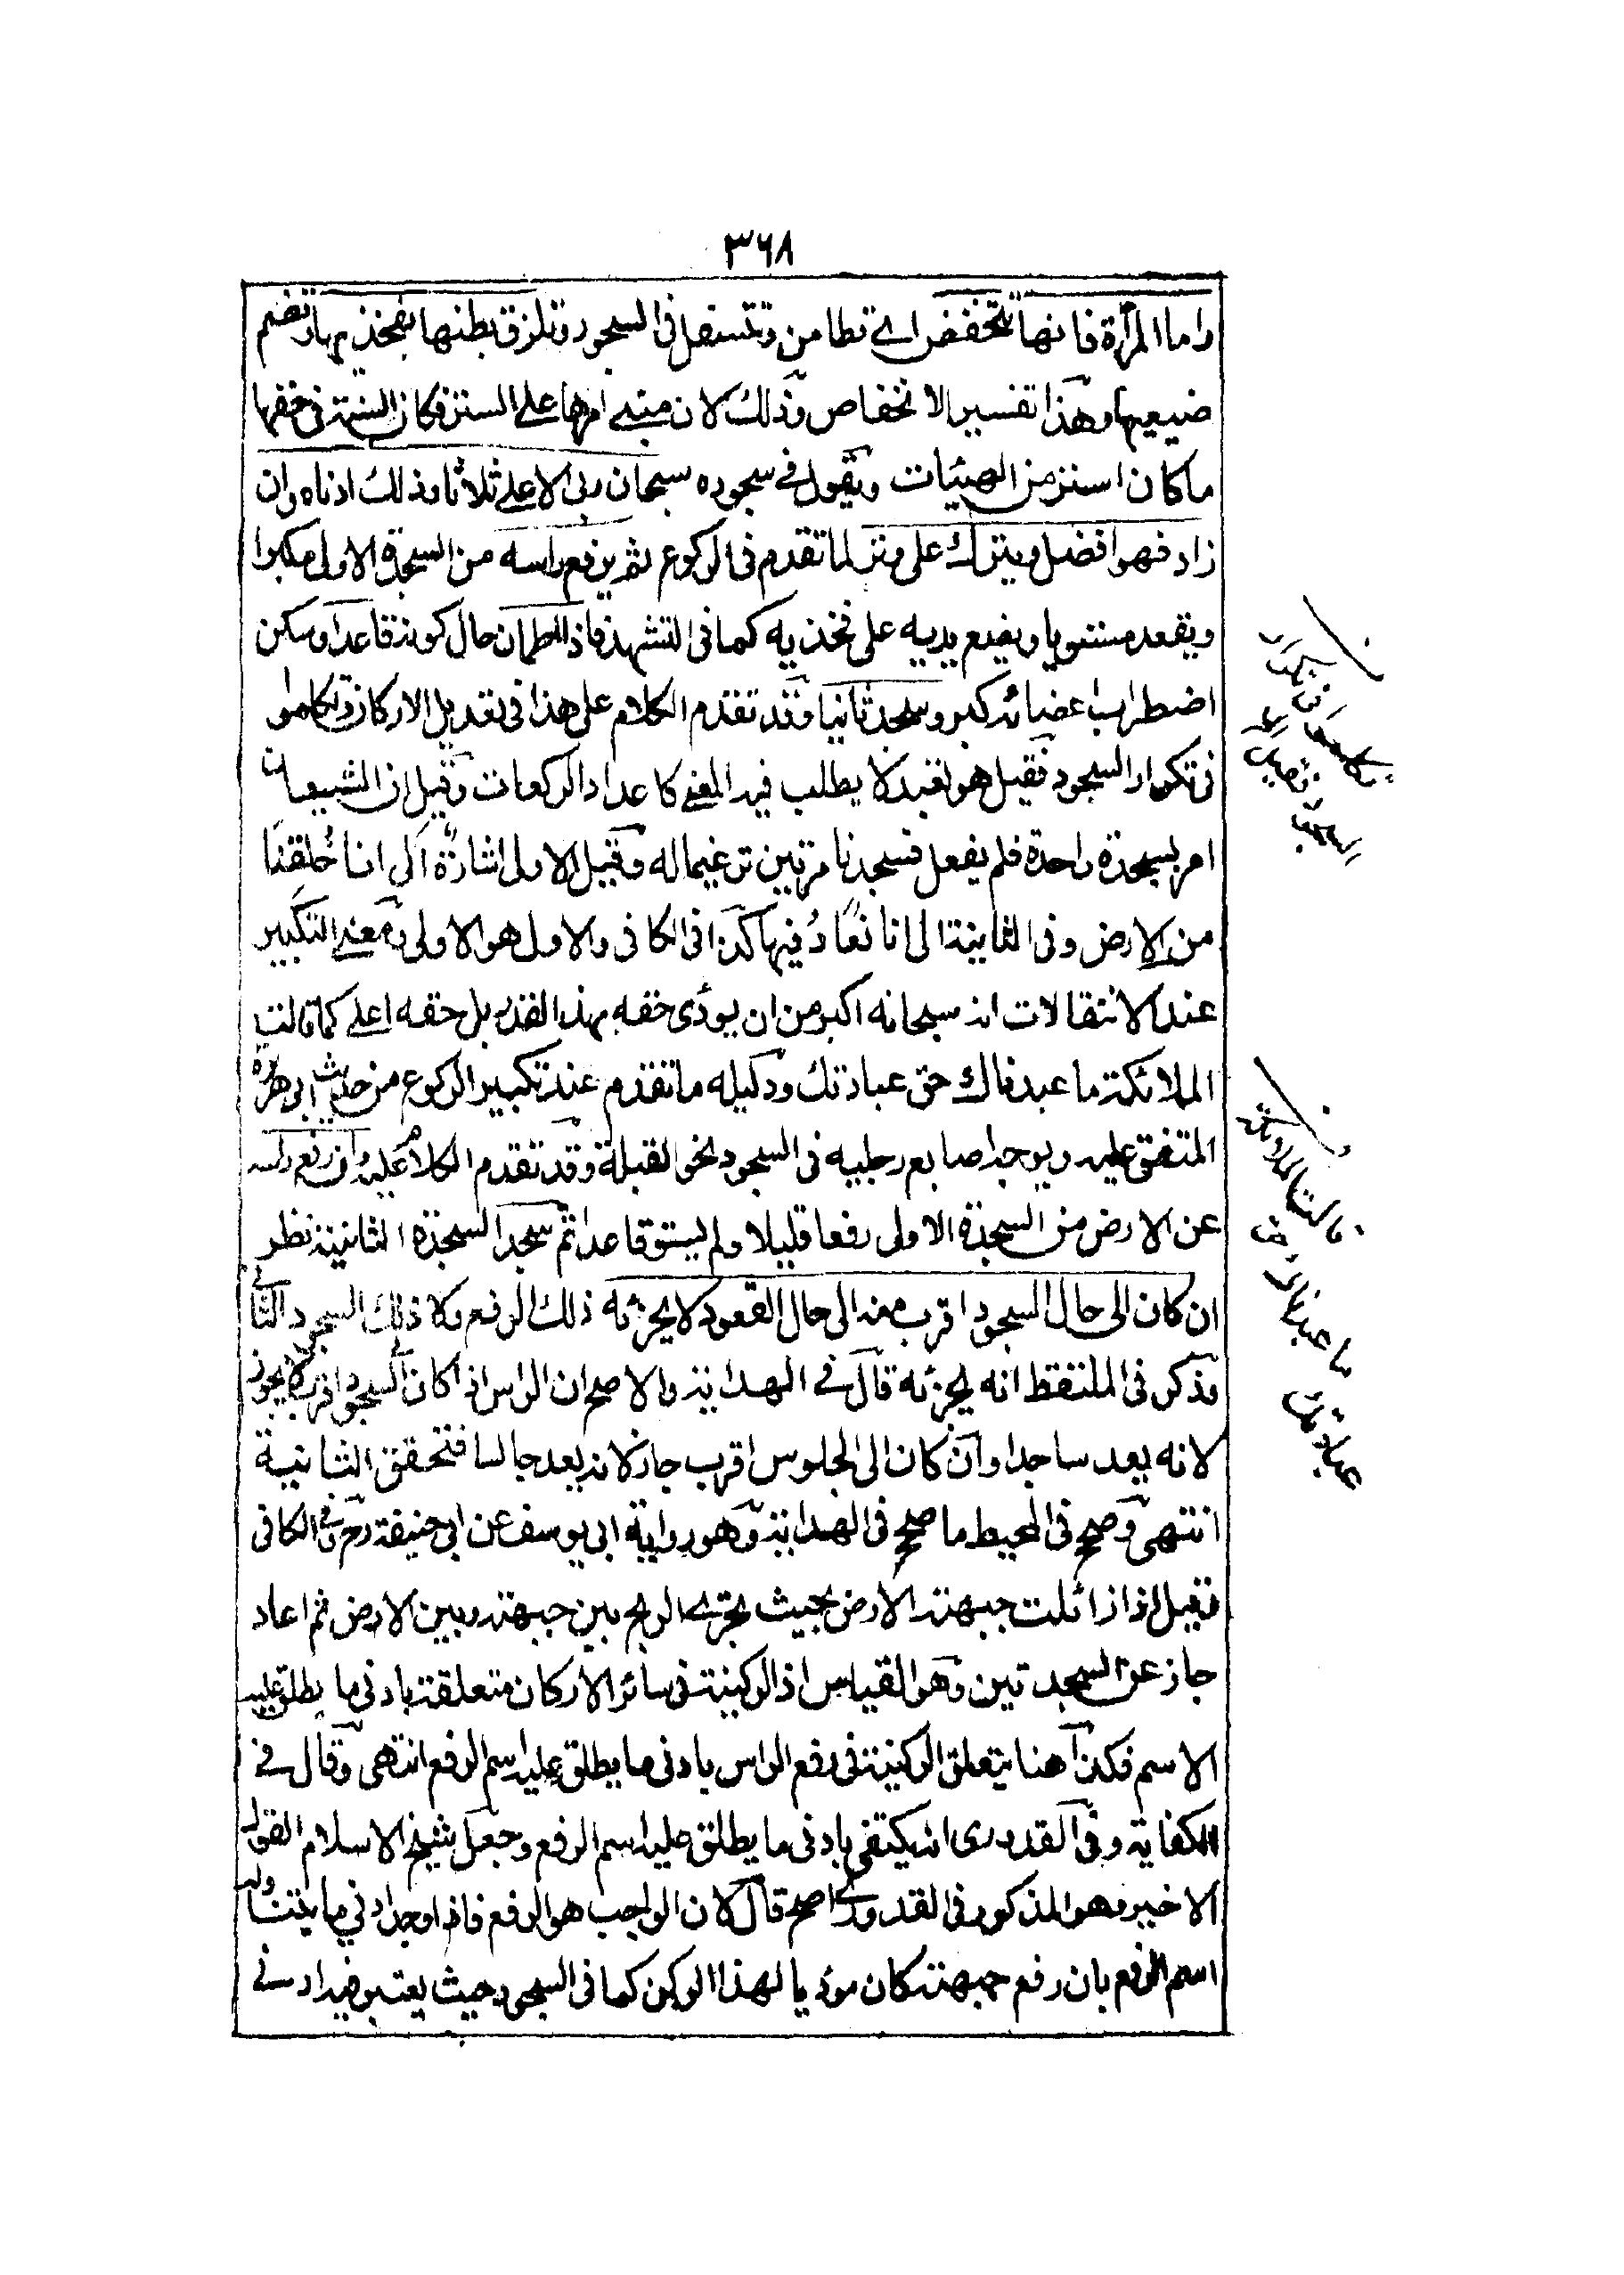 ٣٦٨
واما المرأة فانها تنخفض اى تطامن وتتسفل فى السجود وتلزق بطنها بفخذيها وتضم
ضبعيها وهذا تفسير الانخفاض وذلك لان مبنى امرها على الستر فكان السنة فى حقها
ما كان استر من الهيئات ويقول فى سجوده سبحان ربى الاعلى ثلاثا وذلك ادناه وان
زاد فهو افضل ويترك على وتر لما تقدم فى الركوع ثم يرفع راسه من السجدة الاولى مكبرا
ويقعد مستويا ويضع يديه على فخذيه كما فى التشهد فاذا اطمان حال كونه قاعدا وسكن
اضطراب اعضائه كبر وسجد ثانيا وقد تقدم الكلام على هذا فى تعديل الاركان وتكلموا
فى تكرار السجود فقيل هو تعبد لا يطلب فيه المعنى كاعداد الركعات وقيل ان الشيطان
امر بسجدة واحدة فلم يفعل فسجدنا مرتين ترغيما له وقيل الاولى اشارة الى انا خلقنا
من الارض وفى الثانية الى انا نعاد فيها كذا فى الكافى والاول هو الاولى ومعنى التكبير
عند الانتقالات انه سبحانه اكبر من ان يودى حقه بهذا القدر بل حقه اعلى كما قالت
الملائكة ما عبدناك حق عبادتك ودليله ما تقدم عند تكبير الركوع من حديث ابى هريرة
المتفق عليه ويوجه اصابع رجليه فى السجود نحو القبلة وقد تقدم الكلام عليه وان رفع راسه
عن الارض من السجدة الاولى رفعا قليلا ولم يستو قاعدا ثم سجد السجدة الثانية نظر
ان كان الى حال السجود اقرب منه الى حال القعود لا يجزئه ذلك الرفع ولا ذلك السجود الثانى
وذكر فى الملتقط انه يجزئه قال فى الهداية والاصح ان الراس اذا كان الى السجود اقرب لا يجوز
لانه يعد ساجدا وان كان الى الجلوس اقرب جاز لانه يعد جالسا فتحقق الثانية
انتهى وصحح فى المحيط ما صحح فى الهداية وهو رواية ابى يوسف عن ابى حنيفة رح وفى الكافى
وقيل اذا زائلت جبهته الارض بحيث يجرى الريح بين جبهته وبين الارض ثم اعاد
جاز عن السجدتين وهو القياس اذ الركنية فى سائر الاركان متعلقة بادنى ما يطلق عليه
الاسم فكذا هنا يتعلق الركنية فى رفع الراس بادنى ما يطلق عليه اسم الرفع انتهى وقال فى
الكفاية وفى القدورى انه يكتفى بادنى ما يطلق عليه اسم الرفع وجعل شيخ الاسلام القول
الاخير وهو المذكور فى القدورى اصح قال لان الواجب هو الرفع فاذا وجد ادنى ما يتناوله
اسم الرفع بان رفع جبهته كان موديا لهذا الركن كما فى السجود حيث يعتبر فيه ادنى
قالت الملائكة
ما عبدناك حق
عبادتك